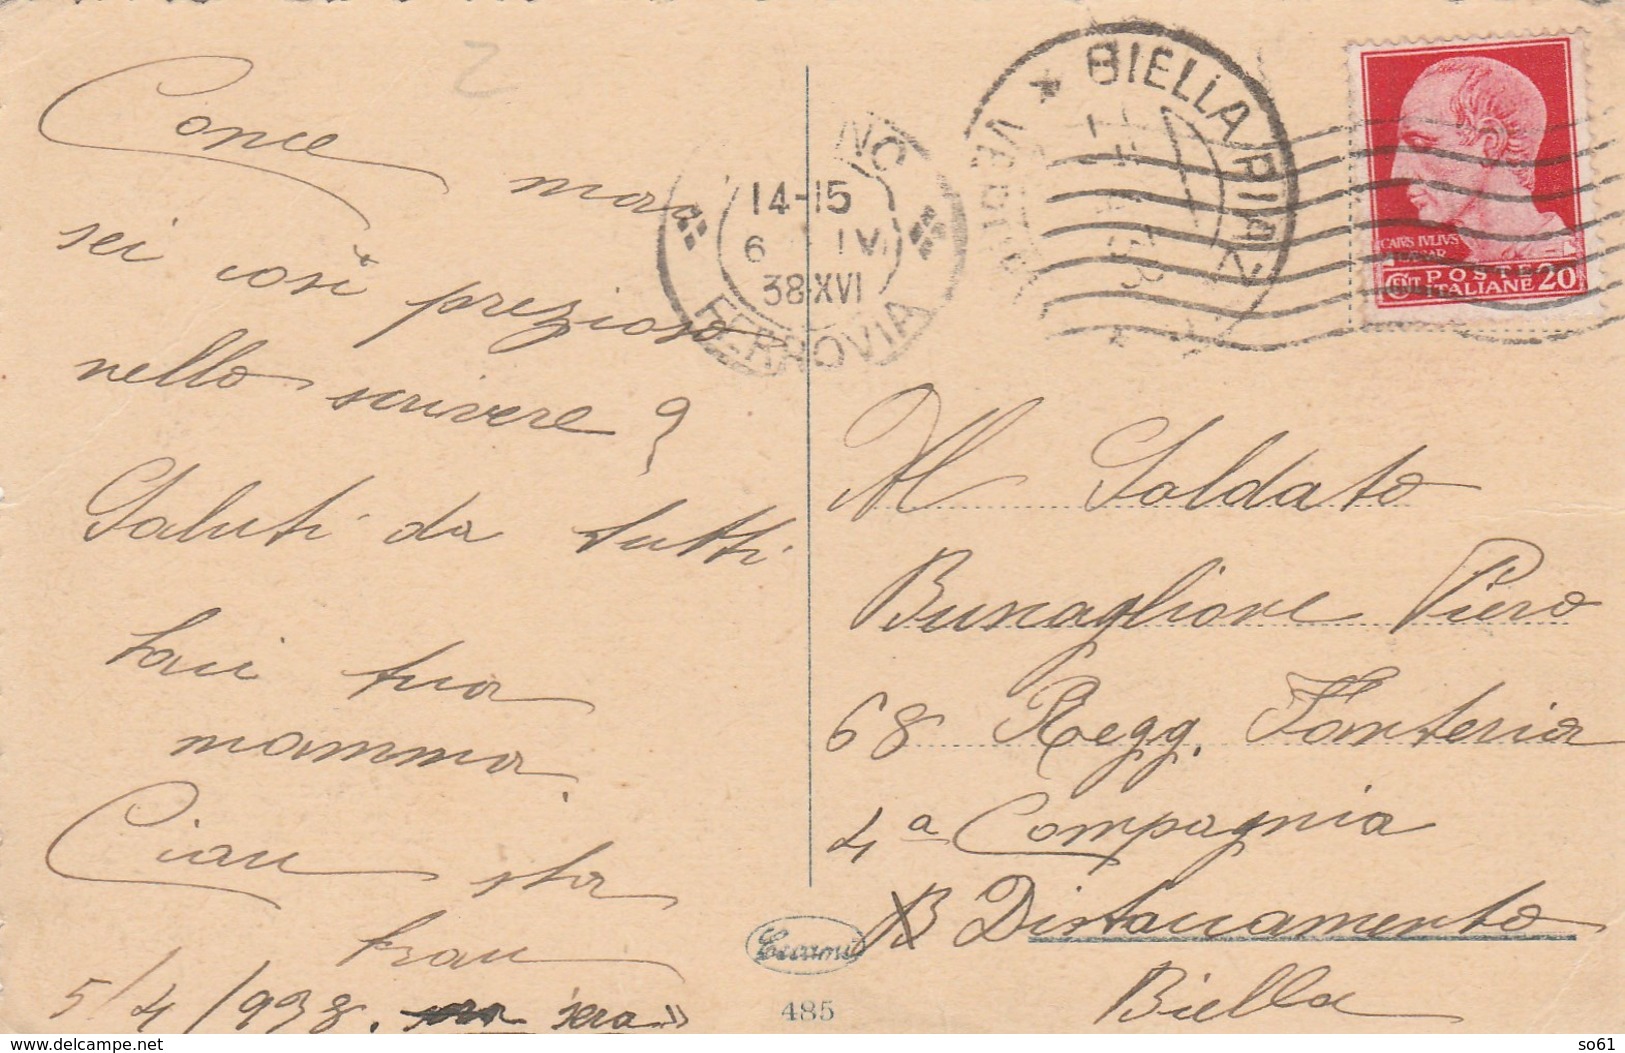 Come mai
sei così prezioso
nello scrivere?
Saluti da tutti
tua
mamma
Ciau sta
5/4/938. sera
NO
14-15
6 IV
38·XVI
FERROVIA
BIELLA PIAZZO
CAIVS IVLIVS
CENT POSTE
ITALIANE 20
Al Soldato
Buscaglione Piero
68 Regg. Fanteria
4ª Compagnia
Distaccamento
Biella
485
delcampe.net
so61